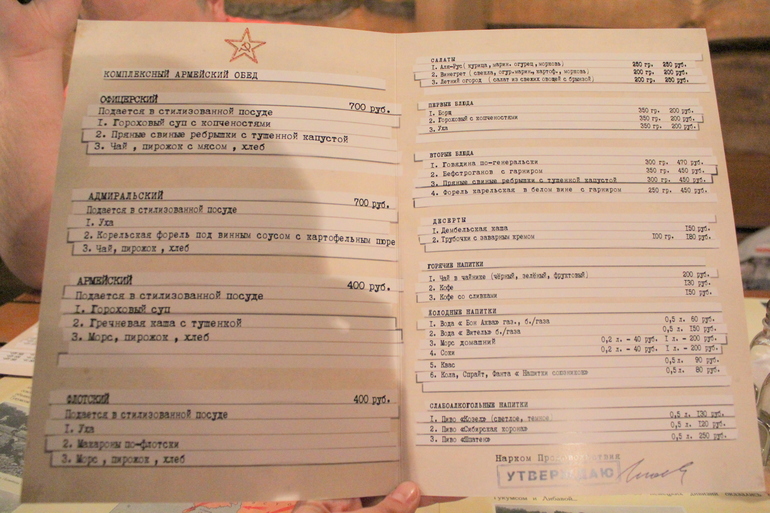 КОМПЛЕКСНЫЙ АРМЕЙСКИЙ ОБЕД
ОФИЦЕРСКИЙ 700 руб.
Подается в стилизованной посуде
1. Гороховый суп с копченостями
2. Пряные свиные ребрышки с тушенной капустой
3. Чай , пирожок с мясом , хлеб
АДМИРАЛЬСКИЙ 700 руб.
Подается в стилизованной посуде
1. Уха
2. Корельская форель под винным соусом с картофельным пюре
3. Чай, пирожок , хлеб
АРМЕЙСКИЙ 400 руб.
Подается в стилизованной посуде
1. Гороховый суп
2. Гречневая каша с тушенкой
3. Морс, пирожок , хлеб
ФЛОТСКИЙ 400 руб.
Подается в стилизованной посуде
1. Уха
2. Макароны по-флотски
3. Морс , пирожок , хлеб
САЛАТЫ
1. Аля-Рус ( курица, марин. огурец, морковь) 250 гр. 250 руб.
2. Винегрет ( свекла, огур.марин, картоф., морковь) 200 гр. 200 руб.
3. Летний огород ( салат из свежих овощей с брынзой) 200 гр. 250 руб.
ПЕРВЫЕ БЛЮДА
1. Борщ 350 гр. 200 руб.
2. Гороховый с копченостями 350 гр. 200 руб.
3. Уха 350 гр. 200 руб.
ВТОРЫЕ БЛЮДА
1. Говядина по-генеральски 300 гр. 470 руб.
2. Бефстроганов с гарниром 350 гр. 450 руб.
3. Пряные свиные ребрышки с тушенной капустой 300 гр. 450 руб.
4. Форель карельская в белом вине с гарниром 250 гр. 450 руб.
ДЕСЕРТЫ
1. Дембельская каша 150 руб.
2. Трубочки с заварным кремом 100 гр. 180 руб.
ГОРЯЧИЕ НАПИТКИ
1. Чай в чайнике (чёрный, зелёный, фруктовый) 200 руб.
2. Кофе 130 руб.
3. Кофе со сливками 150 руб.
ХОЛОДНЫЕ НАПИТКИ
1. Вода « Бон Аква» газ., б./газа 0,5 л. 60 руб.
2. Вода « Витель» б./газа 0,5 л. 150 руб.
3. Морс домашний 0,2 л. - 40 руб. 1 л. - 200 руб.
4. Соки 0,2 л. - 40 руб. 1 л. - 200 руб.
5. Квас 0,5 л. 90 руб.
6. Кола, Спрайт, Фанта « Напитки союзников» 0,5 л. 80 руб.
СЛАБОАЛКОГОЛЬНЫЕ НАПИТКИ
1. Пиво «Козел» (светлое, темное) 0,5 л. 130 руб.
2. Пиво «Сибирская корона» 0,5 л. 120 руб.
3. Пиво «Шпатен» 0,5 л. 250 руб.
Нарком Продовольствия
УТВЕРЖДАЮ